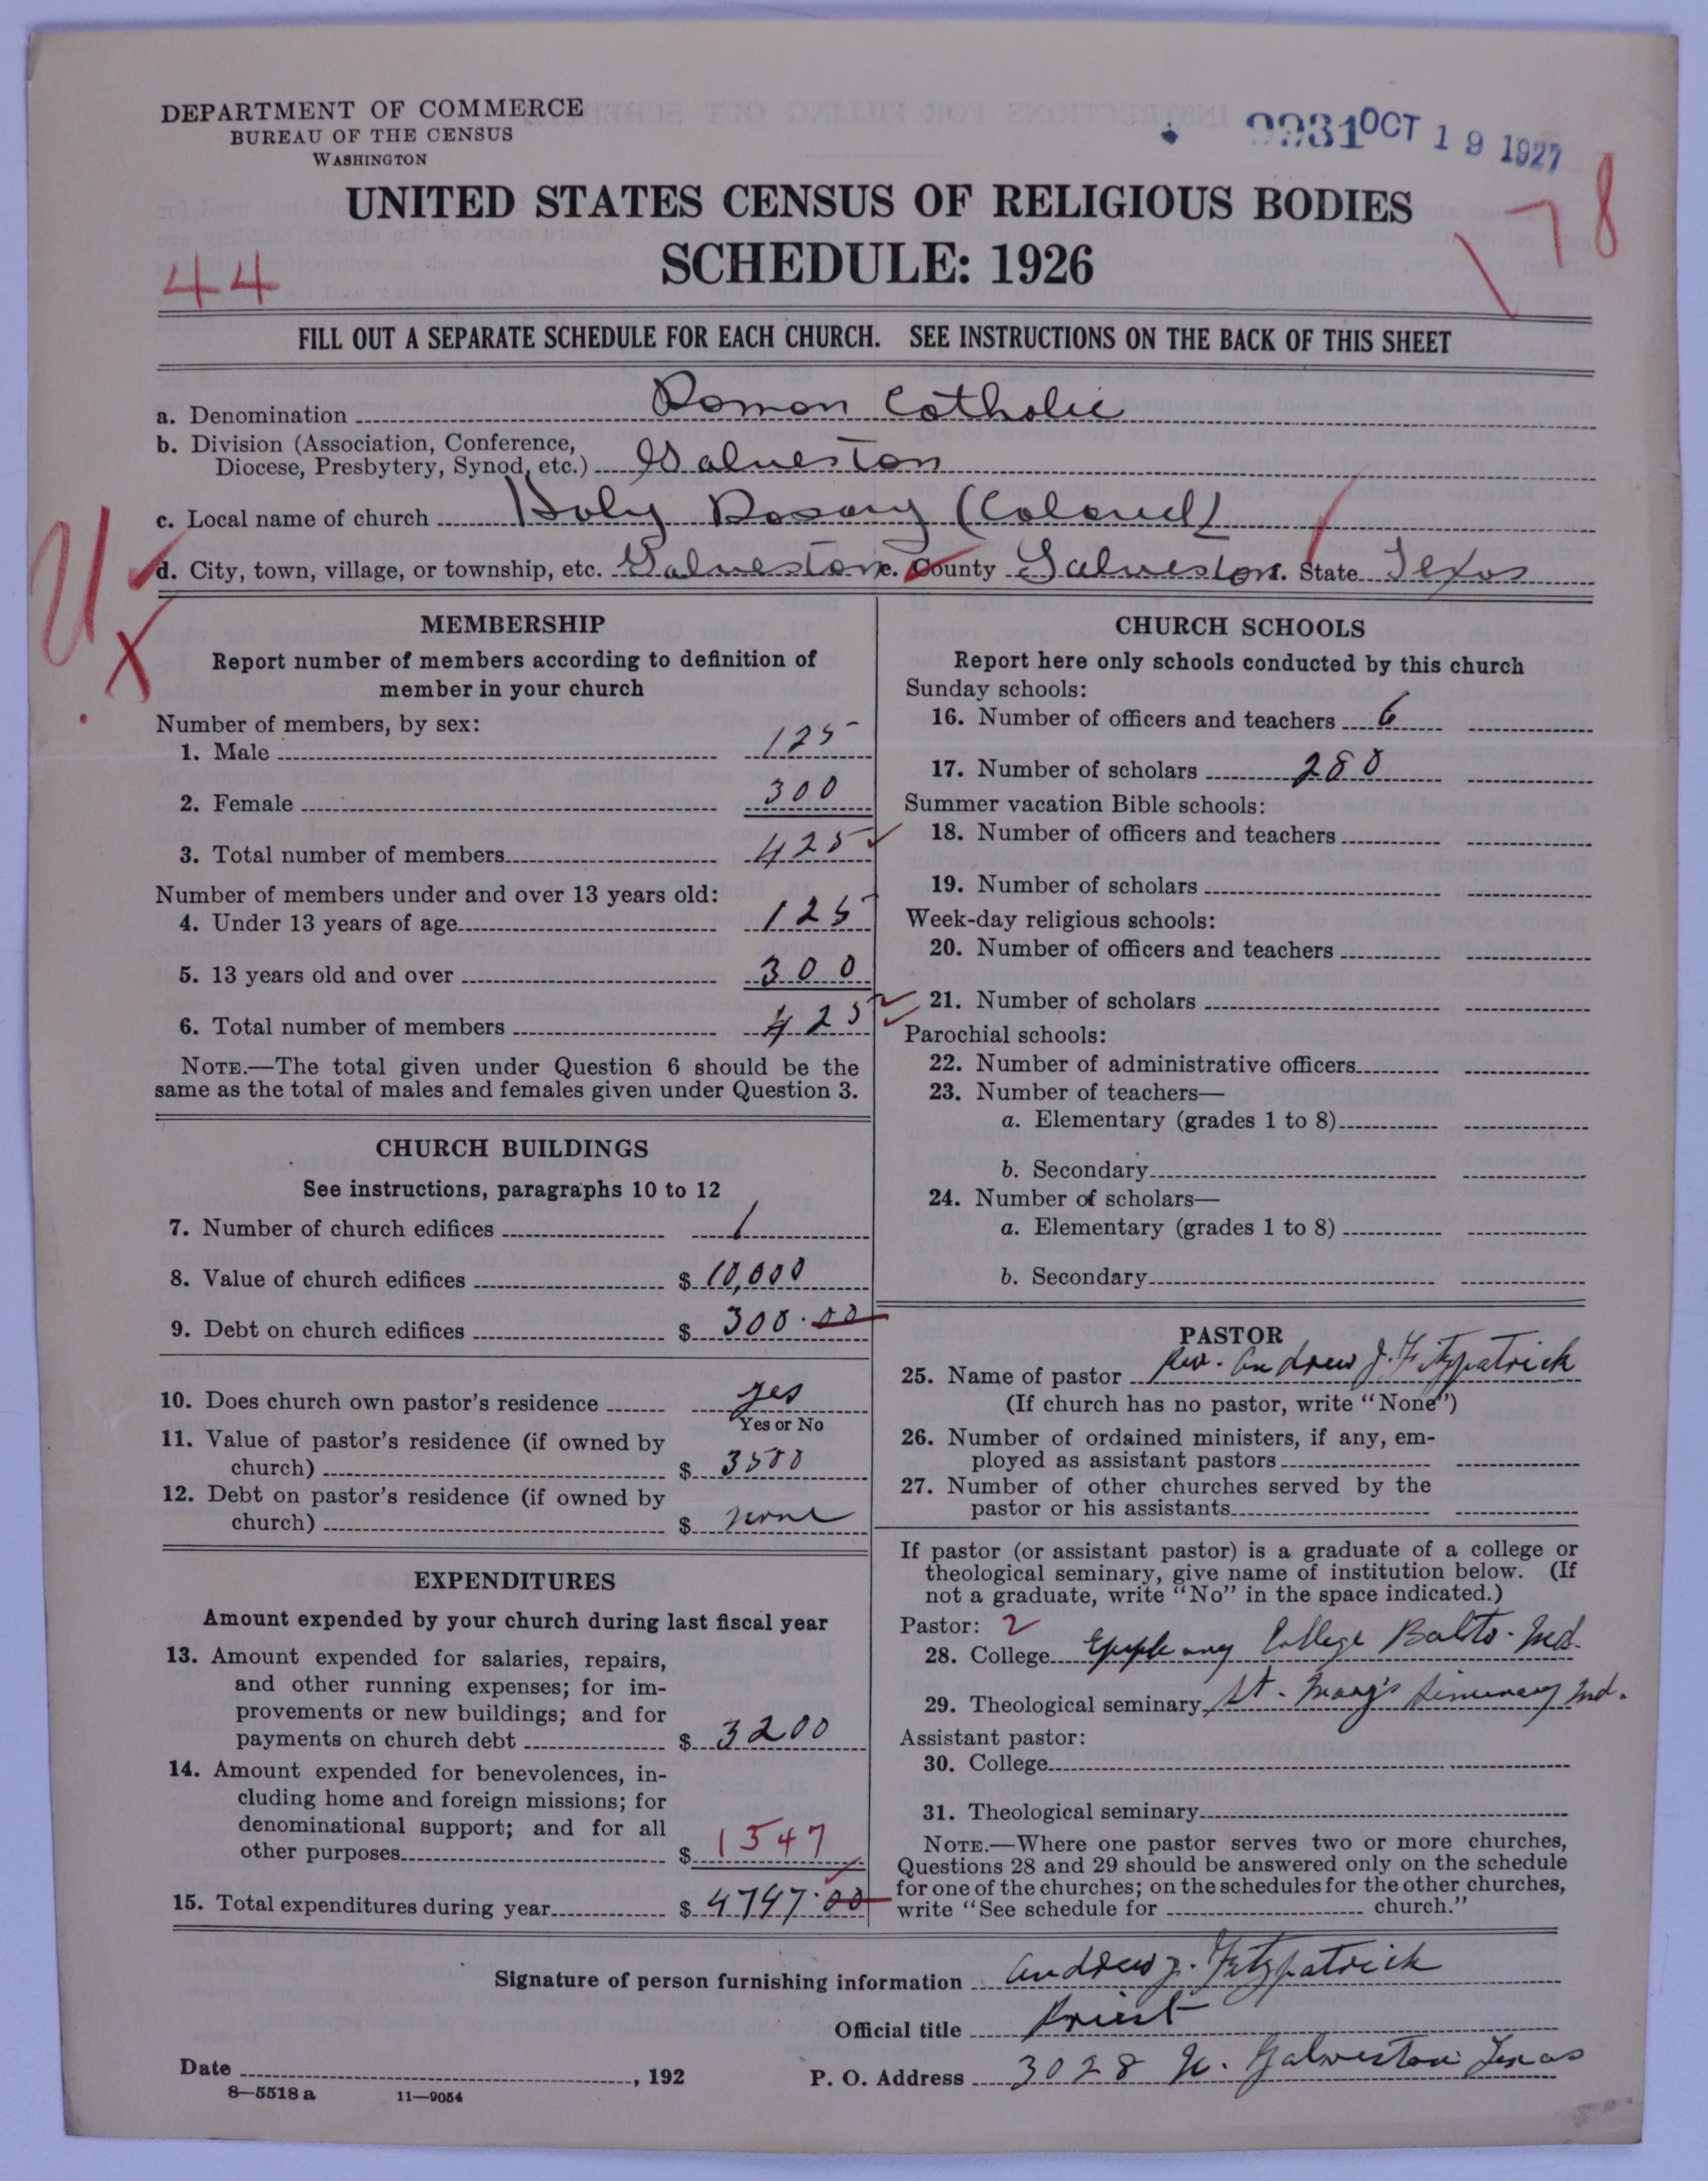 DEPARTMENT OF COMMERCE
BUREAU OF THE CENSUS
WASHINGTON
OCT 19 1927
UNITED STATES CENSUS OF RELIGIOUS BODIES
SCHEDULE: 1926
44
178
FILL OUT A SEPARATE SCHEDULE FOR EACH CHURCH. SEE INSTRUCTIONS ON THE BACK OF THIS SHEET
a. Denomination Roman Catholic
b. Division (Association, Conference,
Diocese, Presbytery, Synod, etc.) Galveston
c. Local name of church Holy Rosary (Colored)
d. City, town, village, or township, etc. Galveston e. County Galveston f. State Texas
MEMBERSHIP
Report number of members according to definition of
member in your church
Number of members, by sex:
1. Male 125
2. Female 300
3. Total number of members 425
Number of members under and over 13 years old:
4. Under 13 years of age 125
5. 13 years old and over 300
6. Total number of members 425
NOTE.—The total given under Question 6 should be the
same as the total of males and females given under Question 3.
CHURCH BUILDINGS
See instructions, paragraphs 10 to 12
7. Number of church edifices 1
8. Value of church edifices $ 10,000
9. Debt on church edifices $ 300.00
10. Does church own pastor's residence yes
Yes or No
11. Value of pastor's residence (if owned by
church) $ 3500
12. Debt on pastor's residence (if owned by
church) $ none
EXPENDITURES
Amount expended by your church during last fiscal year
13. Amount expended for salaries, repairs,
and other running expenses; for im-
provements or new buildings; and for
payments on church debt $ 3200
14. Amount expended for benevolences, in-
cluding home and foreign missions; for
denominational support; and for all
other purposes $ 1547
15. Total expenditures during year $ 4747.00
CHURCH SCHOOLS
Report here only schools conducted by this church
Sunday schools:
16. Number of officers and teachers 6
17. Number of scholars 280
Summer vacation Bible schools:
18. Number of officers and teachers
19. Number of scholars
Week-day religious schools:
20. Number of officers and teachers
21. Number of scholars
Parochial schools:
22. Number of administrative officers
23. Number of teachers—
a. Elementary (grades 1 to 8)
b. Secondary
24. Number of scholars—
a. Elementary (grades 1 to 8)
b. Secondary
PASTOR
25. Name of pastor Rev. Andrew J. Fitzpatrick
(If church has no pastor, write "None")
26. Number of ordained ministers, if any, em-
ployed as assistant pastors
27. Number of other churches served by the
pastor or his assistants
If pastor (or assistant pastor) is a graduate of a college or
theological seminary, give name of institution below. (If
not a graduate, write "No" in the space indicated.)
Pastor: 2
28. College Epiphany College Balto. Md.
29. Theological seminary St. Mary's Seminary Md.
Assistant pastor:
30. College
31. Theological seminary
NOTE.—Where one pastor serves two or more churches,
Questions 28 and 29 should be answered only on the schedule
for one of the churches; on the schedules for the other churches,
write "See schedule for church."
Signature of person furnishing information Andrew J. Fitzpatrick
Official title Priest
Date , 192
P. O. Address 3028 Galveston Texas
8—5518 a 11—9054